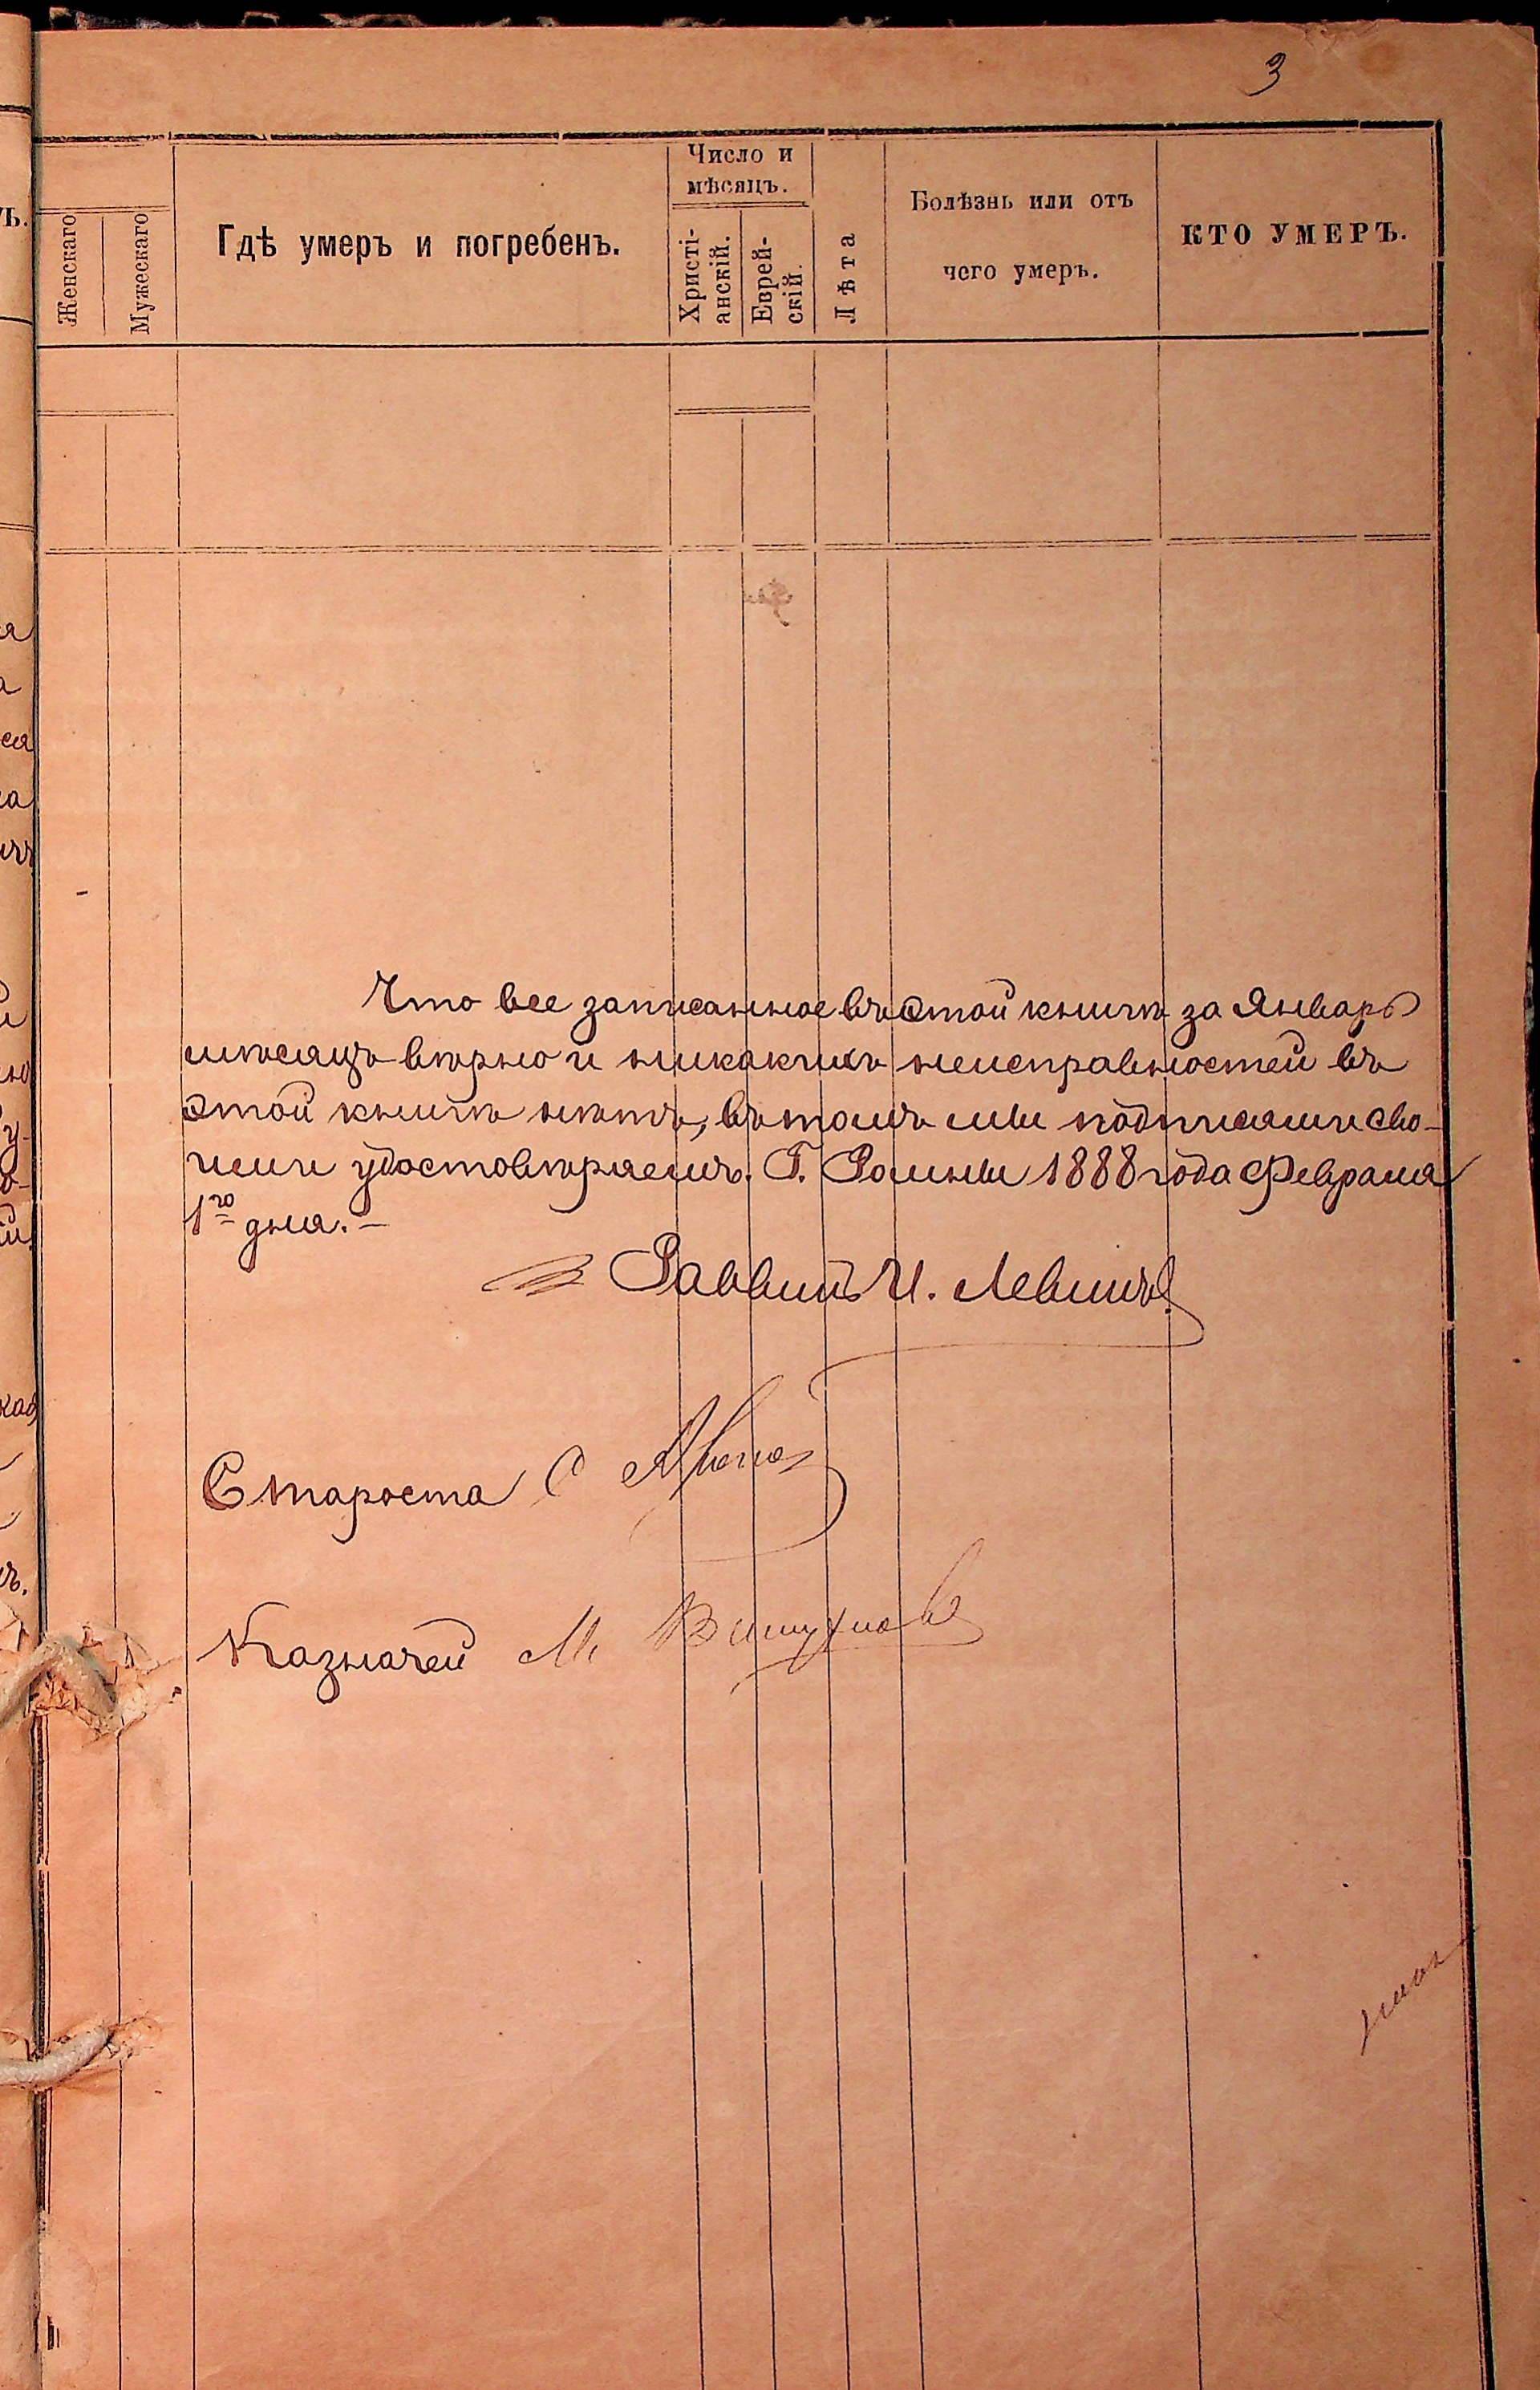 3
Женскаго
Мужескаго
Гдѣ умеръ и погребенъ.
Число и
мѣсяцъ.
Христі-
анскій.
Еврей-
скій.
Лѣта
Болѣзнь или отъ
чего умеръ.
КТО УМЕРЪ.
Что все записанное въ этой книгѣ за Январь
мѣсяцъ вѣрно и никакихъ неисправностей въ
этой книгѣ нѣтъ, въ томъ мы подписями сво-
ими удостовѣряемъ. Г. Ромны 1888 года Февраля
1го дня. —
Раввинъ И. Левинъ
Староста С
Казначей М.